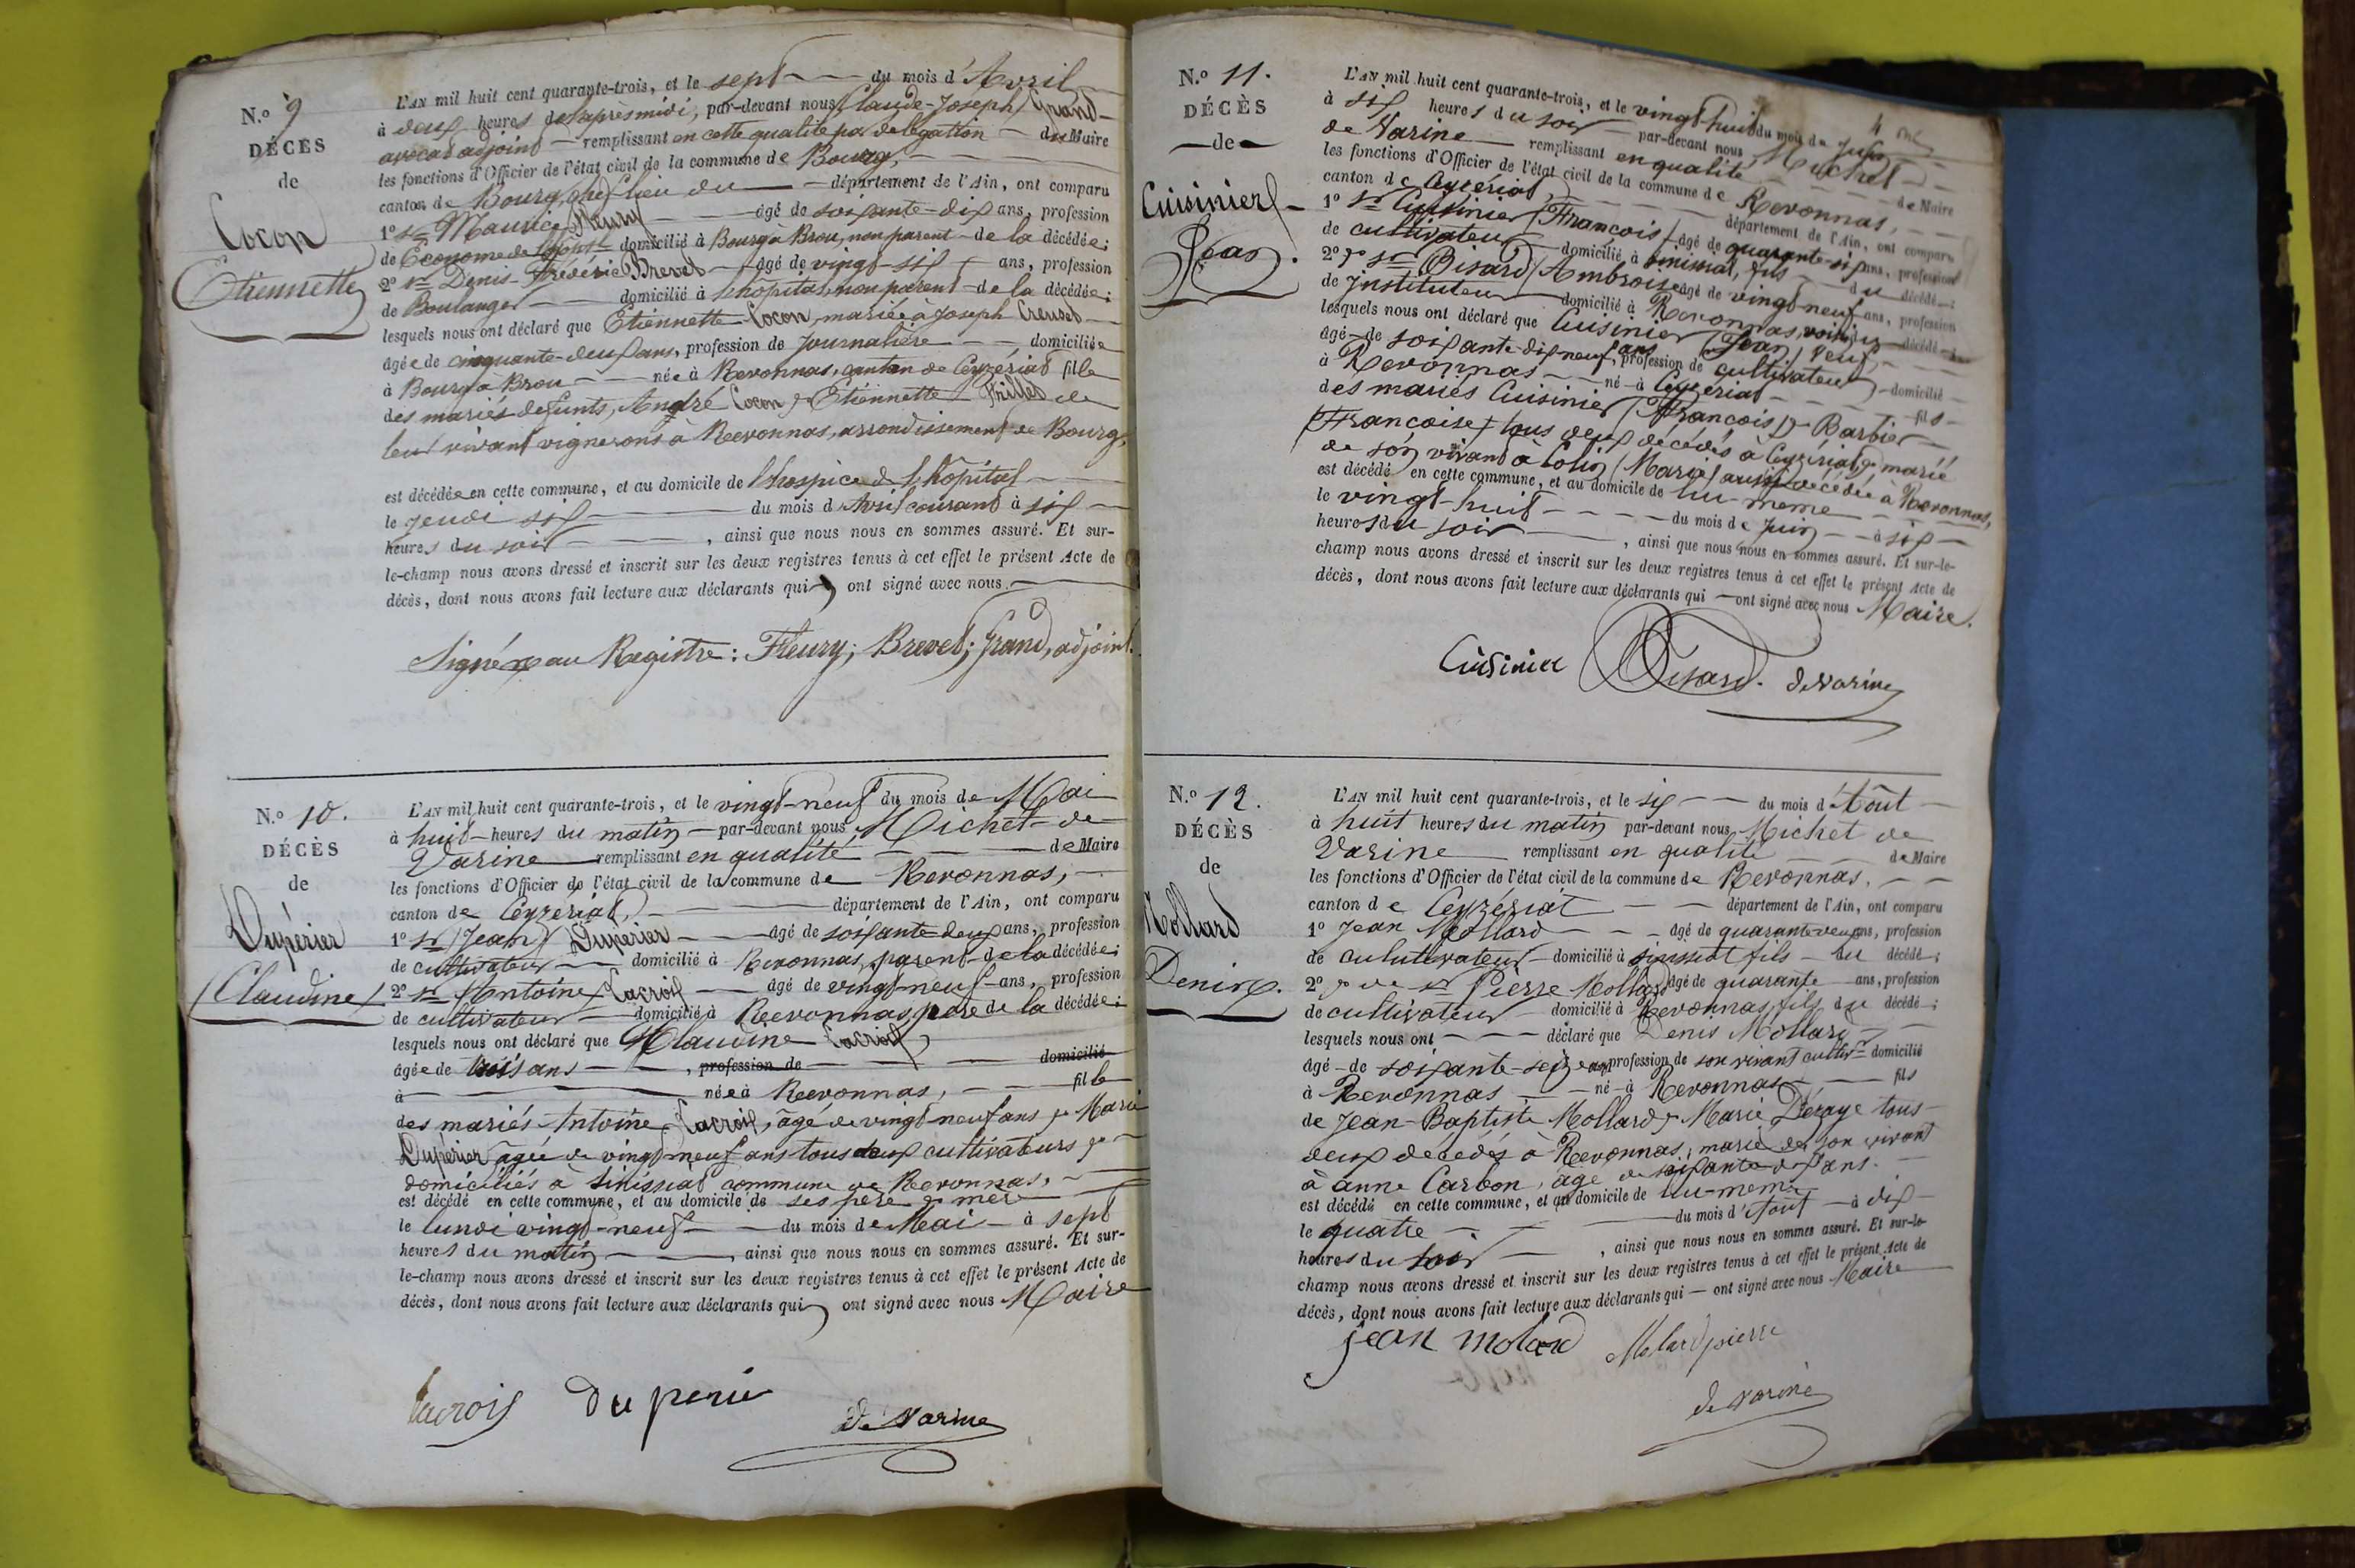 N.º 9
DÉCÈS
de
Cocon
Etiennette
L'AN mil huit cent quarante-trois, et le sept du mois d'Avril
à deux heures de l'après midi, par-devant nous Claude-Joseph Grand
avocat adjoint remplissant en cette qualité par délégation du Maire
les fonctions d'Officier de l'état civil de la commune de Bourg,
canton de Bourg, chef lieu du département de l'Ain, ont comparu
1º Sr Maurice Fleury âgé de soixante-dix ans, profession
de Econome de domicilié à Bourg à Brou, non parent de la décédée;
2º Sr Denis-Frédéric Brevet âgé de vingt-six ans, profession
de Boulanger domicilié à l'hopital, non parent de la décédée;
lesquels nous ont déclaré que Etiennette Cocon, mariée à Joseph Creuset
âgée de cinquante-deux ans, profession de Journalière domiciliée
à Bourg à Brou née à Revonnas, canton de Ceyzériat fille
des mariés defunts, André Cocon & Etiennette de
leur vivant vignerons à Revonnas, arrondissement de Bourg,
est décédée en cette commune, et au domicile de l'hospice de l'hôpital
le Jeudi six du mois d'Avril courant à six
heures du soir, ainsi que nous nous en sommes assuré. Et sur-
le-champ nous avons dressé et inscrit sur les deux registres tenus à cet effet le présent Acte de
décès, dont nous avons fait lecture aux déclarants qui ont signé avec nous.
Signé au Registre: Fleury; Brevet; Grand, adjoint.
N.º 10.
DÉCÈS
de
Dupérier
(Claudine)
L'AN mil huit cent quarante-trois, et le vingt-neuf du mois de Mai
à huit heures du matin par-devant nous Michet de
Varine remplissant en qualité de Maire
les fonctions d'Officier de l'état civil de la commune de Revonnas,
canton de Ceyzériat, département de l'Ain, ont comparu
1º Sr (Jean) Dupérier âgé de soixante-deux ans, profession
de cultivateur domicilié à Revonnas, parent de la décédée;
2º Sr Antoine Lacroix âgé de vingt neuf ans, profession
de cultivateur domicilié à Revonnas, père de la décédée;
lesquels nous ont déclaré que Claudine Lacroix,
âgée de trois ans, profession de domicilié
à née à Revonnas, fille
des mariés Antoine Lacroix, âgé de vingt-neuf ans & Marie
Dupérier âgée de vingt neuf ans tous deux cultivateurs &
domiciliés à Sinissiat commune de Revonnas,
est décédé en cette commune, et au domicile de ses père & mère
le lundi vingt-neuf du mois de Mai à sept
heures du matin, ainsi que nous nous en sommes assuré. Et sur-
le-champ nous avons dressé et inscrit sur les deux registres tenus à cet effet le présent Acte de
décès, dont nous avons fait lecture aux déclarants qui ont signé avec nous Maire
Lacroix Duperié de Varine
N.º 11.
DÉCÈS
de
Cuisinier
Jean.
L'AN mil huit cent quarante-trois, et le vingt-huit du mois de Juin
à six heures du soir par-devant nous Michet
de Varine remplissant en qualité de Maire
les fonctions d'Officier de l'état civil de la commune de Revonnas,
canton de Ceyzériat, département de l'Ain, ont comparu
1º Sr Cuisinier (François) âgé de quarante-six ans, profession
de cultivateur domicilié à Sinissiat, fils du décédé;
2º & Sr Bisard (Ambroise) âgé de vingt neuf ans, profession
de Instituteur domicilié à Revonnas, voisin du décédé;
lesquels nous ont déclaré que Cuisinier (Jean) veuf,
âgé de soixante dix neuf ans, profession de cultivateur domicilié
à Revonnas né à Ceyzeriat fils
des mariés Cuisinier (François) & Barbier
(Françoise) tous deux décédés à Ceyzériat, & marié
de son vivant à Colin (Marie) aussi décédée à Revonnas,
est décédé en cette commune, et au domicile de lui-même
le vingt-huit du mois de Juin à six
heures du soir, ainsi que nous nous en sommes assuré. Et sur-le-
champ nous avons dressé et inscrit sur les deux registres tenus à cet effet le présent Acte de
décès, dont nous avons fait lecture aux déclarants qui ont signé avec nous Maire.
Cuisinier Bisard. de Varine
N.º 12.
DÉCÈS
de
Mollard
Denis.
L'AN mil huit cent quarante-trois, et le six du mois d'Août
à huit heures du matin par-devant nous Michet de
Varine remplissant en qualité de Maire
les fonctions d'Officier de l'état civil de la commune de Revonnas.
canton de Ceyzériat département de l'Ain, ont comparu
1º Jean Mollard âgé de quarante deux ans, profession
de culutivateur domicilié à Sinissiat fils du décédé;
2º Pierre Mollard âgé de quarante ans, profession
de cultivateur domicilié à Revonnas, fils du décédé;
lesquels nous ont déclaré que Denis Mollard
âgé de soixante-seize ans profession de son vivant cultivr domicilié
à Revonnas né à Revonnas fils
de Jean-Baptiste Mollard & Marie Deraye tous
deux décédés à Revonnas, marié de son vivant
à anne Carbon, âgé de soixante dix ans.
est décédé en cette commune, et au domicile de lui-même
le quatre du mois d'Août à dix
heures du soir, ainsi que nous nous en sommes assuré. Et sur-le-
champ nous avons dressé et inscrit sur les deux registres tenus à cet effet le présent Acte de
décès, dont nous avons fait lecture aux déclarants qui ont signé avec nous Maire
jean molard Molard pierre
de Varine